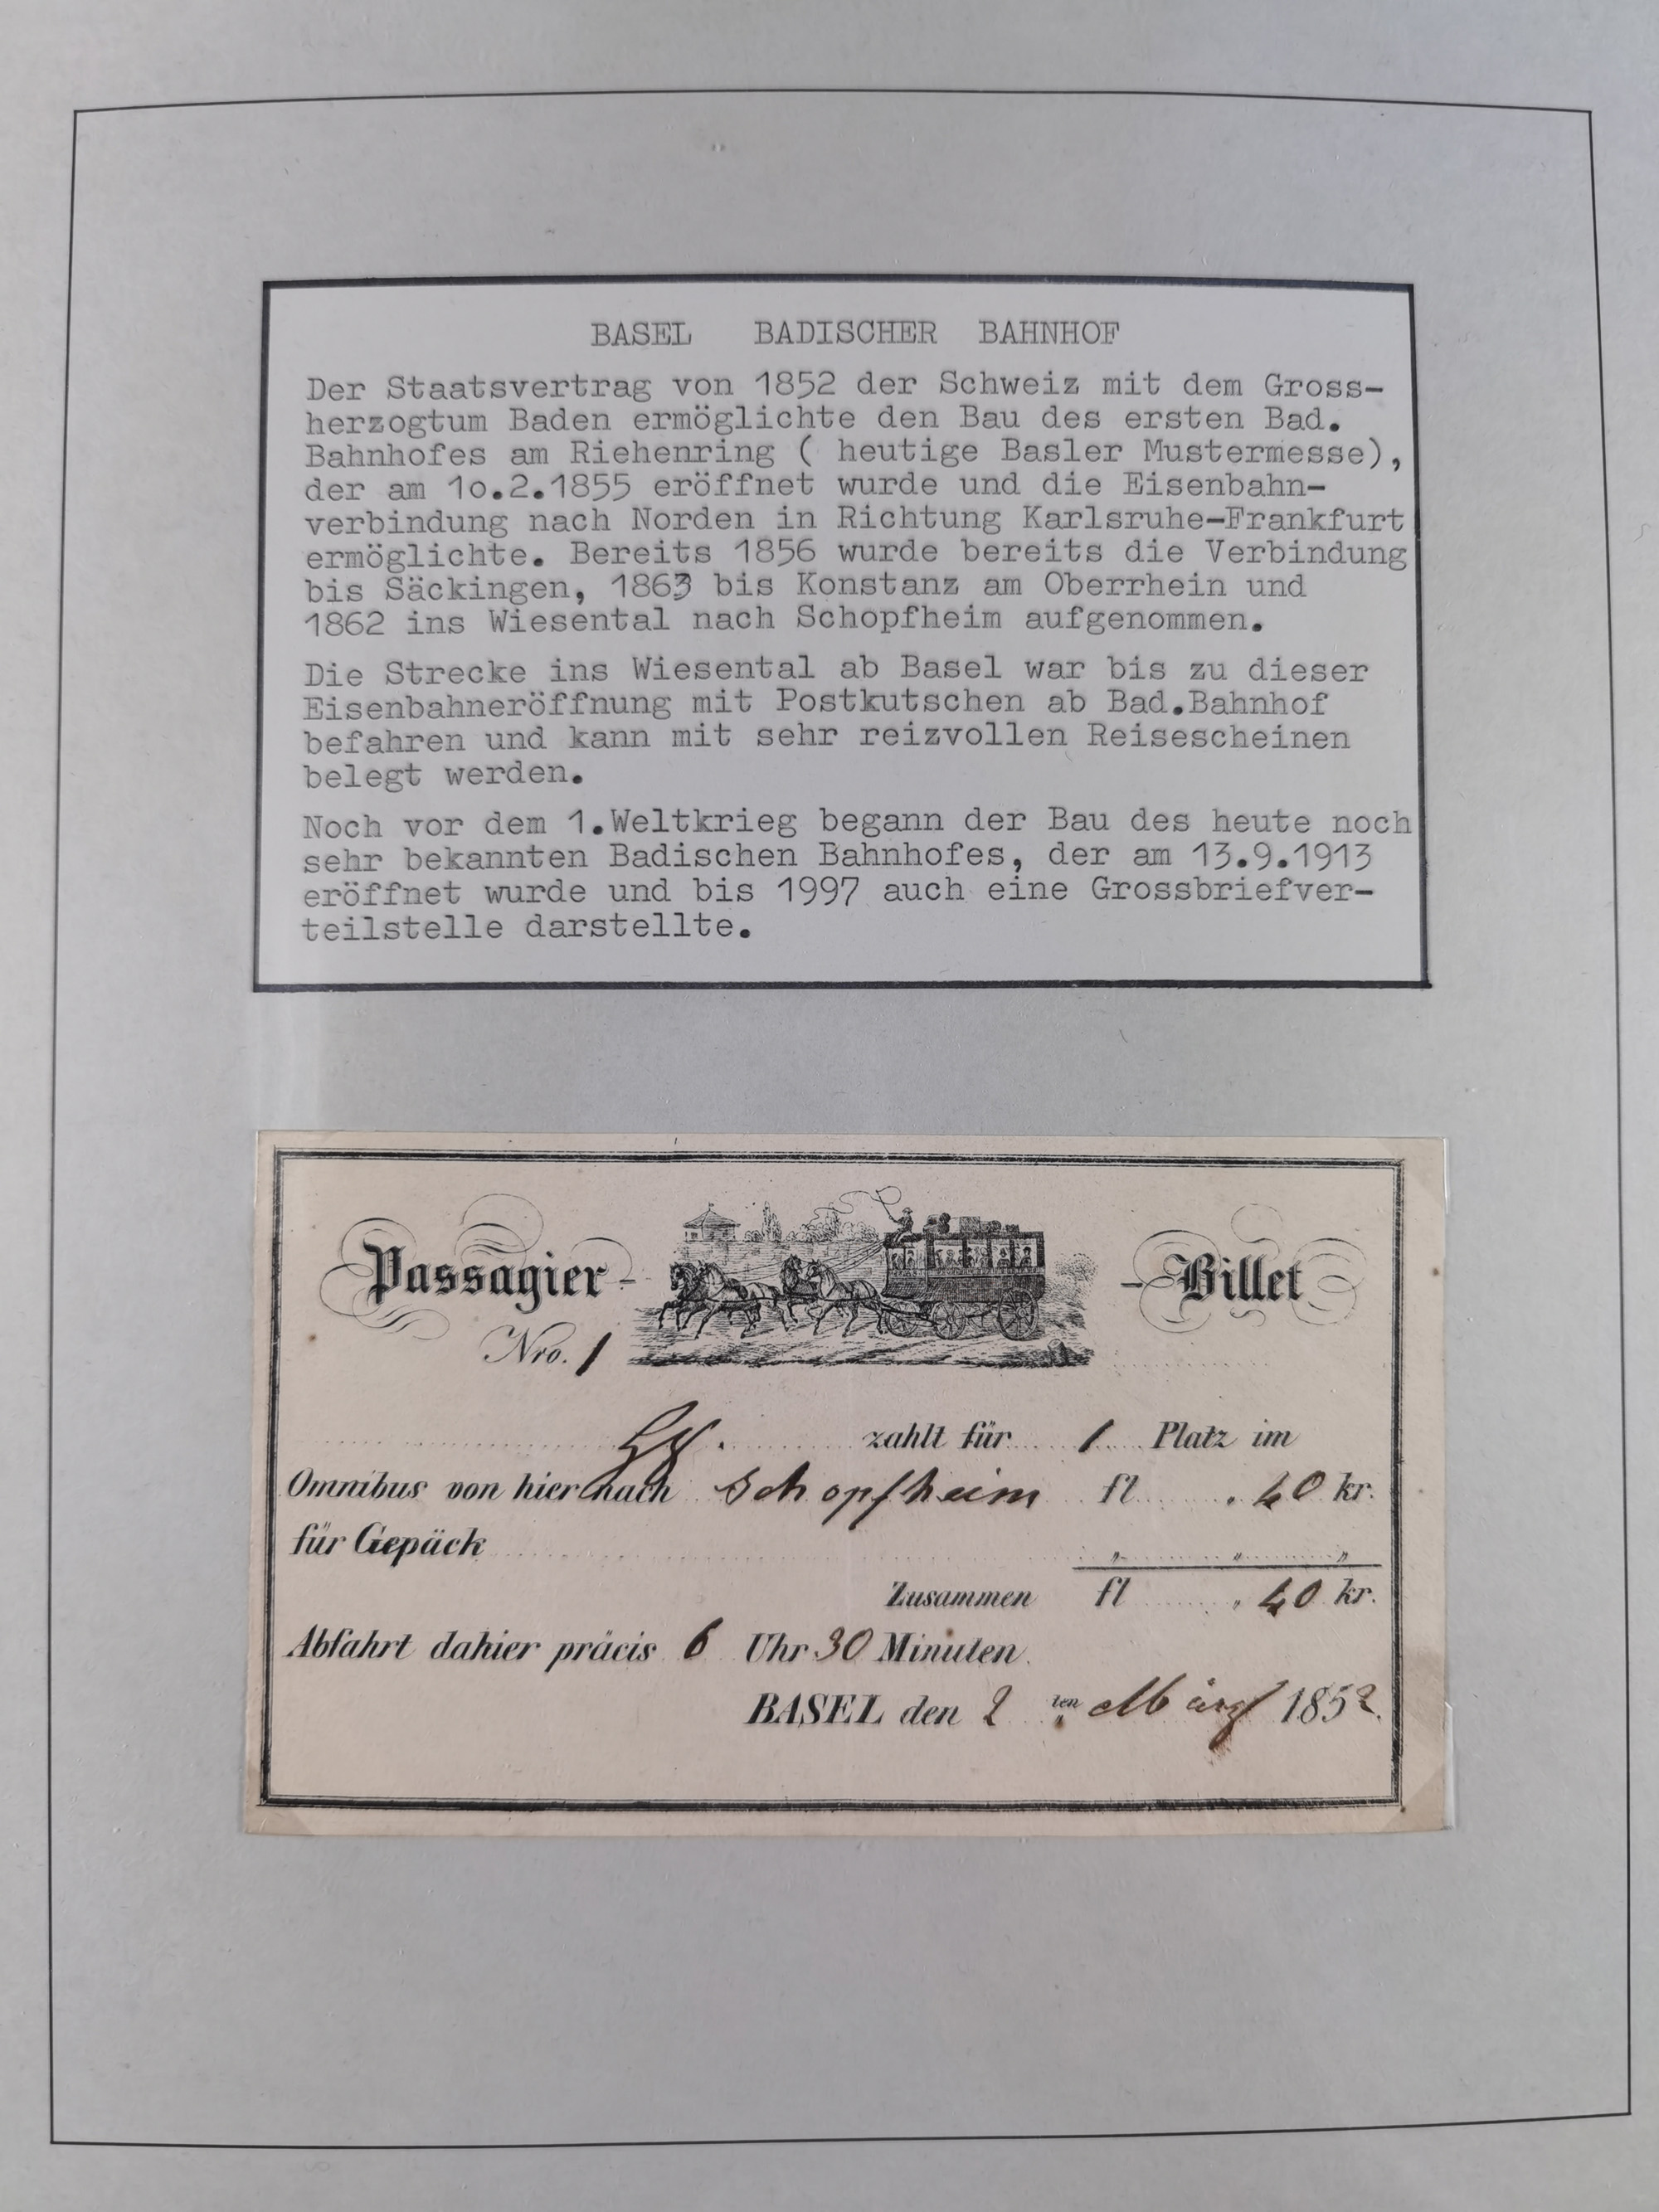 BASEL BADISCHER BAHNHOF
Der Staatsvertrag von 1852 der Schweiz mit dem Gross-
herzogtum Baden ermöglichte den Bau des ersten Bad.
Bahnhofes am Riehenring ( heutige Basler Mustermesse),
der am 1o.2.1855 eröffnet wurde und die Eisenbahn-
verbindung nach Norden in Richtung Karlsruhe-Frankfurt
ermöglichte. Bereits 1856 wurde bereits die Verbindung
bis Säckingen, 1863 bis Konstanz am Oberrhein und
1862 ins Wiesental nach Schopfheim aufgenommen.
Die Strecke ins Wiesental ab Basel war bis zu dieser
Eisenbahneröffnung mit Postkutschen ab Bad.Bahnhof
befahren und kann mit sehr reizvollen Reisescheinen
belegt werden.
Noch vor dem 1.Weltkrieg begann der Bau des heute noch
sehr bekannten Badischen Bahnhofes, der am 13.9.1913
eröffnet wurde und bis 1997 auch eine Grossbriefver-
teilstelle darstellte.
Passagier- -Billet
Nro. 1
zahlt für 1 Platz im
Omnibus von hier nach Schopfheim fl . 40 kr.
für Gepäck " " "
Zusammen fl . 40 kr.
Abfahrt dahier präcis 6 Uhr 30 Minuten.
BASEL den 2 ten März 1852.